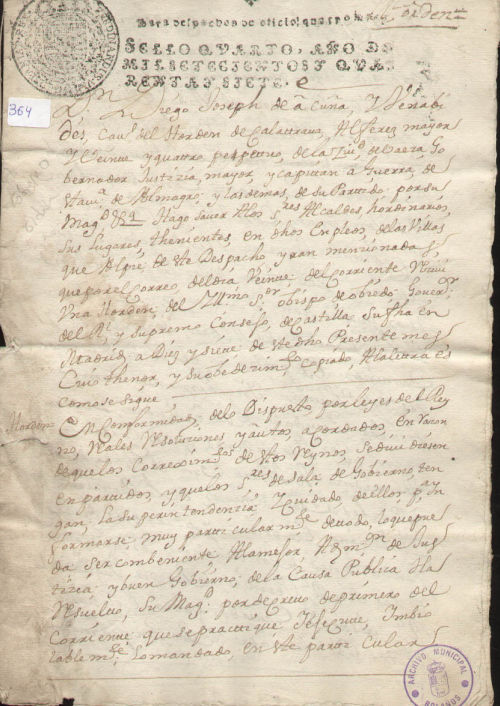 Para despachos de oficio quatro mrs.
SELLO QVARTO, AÑO DE
MIL SETECIENTOS Y QVA
RENTA Y SIETE.
orden
364
Dn Diego Joseph de acuña, y Benabi
des, Cavo. del Horden de Calattrava, Alferez mayor
y Veinte y quattro perpettuo, de la Ziud. de Baeza Go
bernador Justizia mayor, y Capitan a Guerra, de
estta villa de Almagro, y las demas, de su Parttido por su
Magd. &a Hago saver a los Sres Alcaldes, hordinarios,
sus lugares, thenientes, en dhos Empleos, de las Villas
que Al pie de este Despacho yran menzionadas,
que por el Correo, del dia Veinte, del Corriente
Una Horden, del Illmo Sor. obispo de Gover.
del Rl. y Supremo Consejo, de Castilla Su fha en
Madrid, a Diez y siete de este dho Presente mes
Cuio thenor, y su obedezimto Copiado A la letra es
como se sigue
Horden En Conformidad, de lo Dispuesto por leyes de el Rey
no, Reales Resoluciones y autos, acordados, en razon
de que los Correximtos de estos Reynos, se dividiesen
en partidos, y que los Sres de Sala, de Govierno, ten
gan, la Superintendenzia y Cuidado, de ellos, pa. yn
formarse, muy particularmte de todo, lo que pue
da ser combeniente A la mejor, Admon de Jus
tizia, y buen Gobierno, de la Causa Publica Ha
Resuelto, Su Magd. por decreto de primero del
Corriente que se practtique
lo mandado, en este particular
ARCHIVO MUNICIPAL
BOLAÑOS